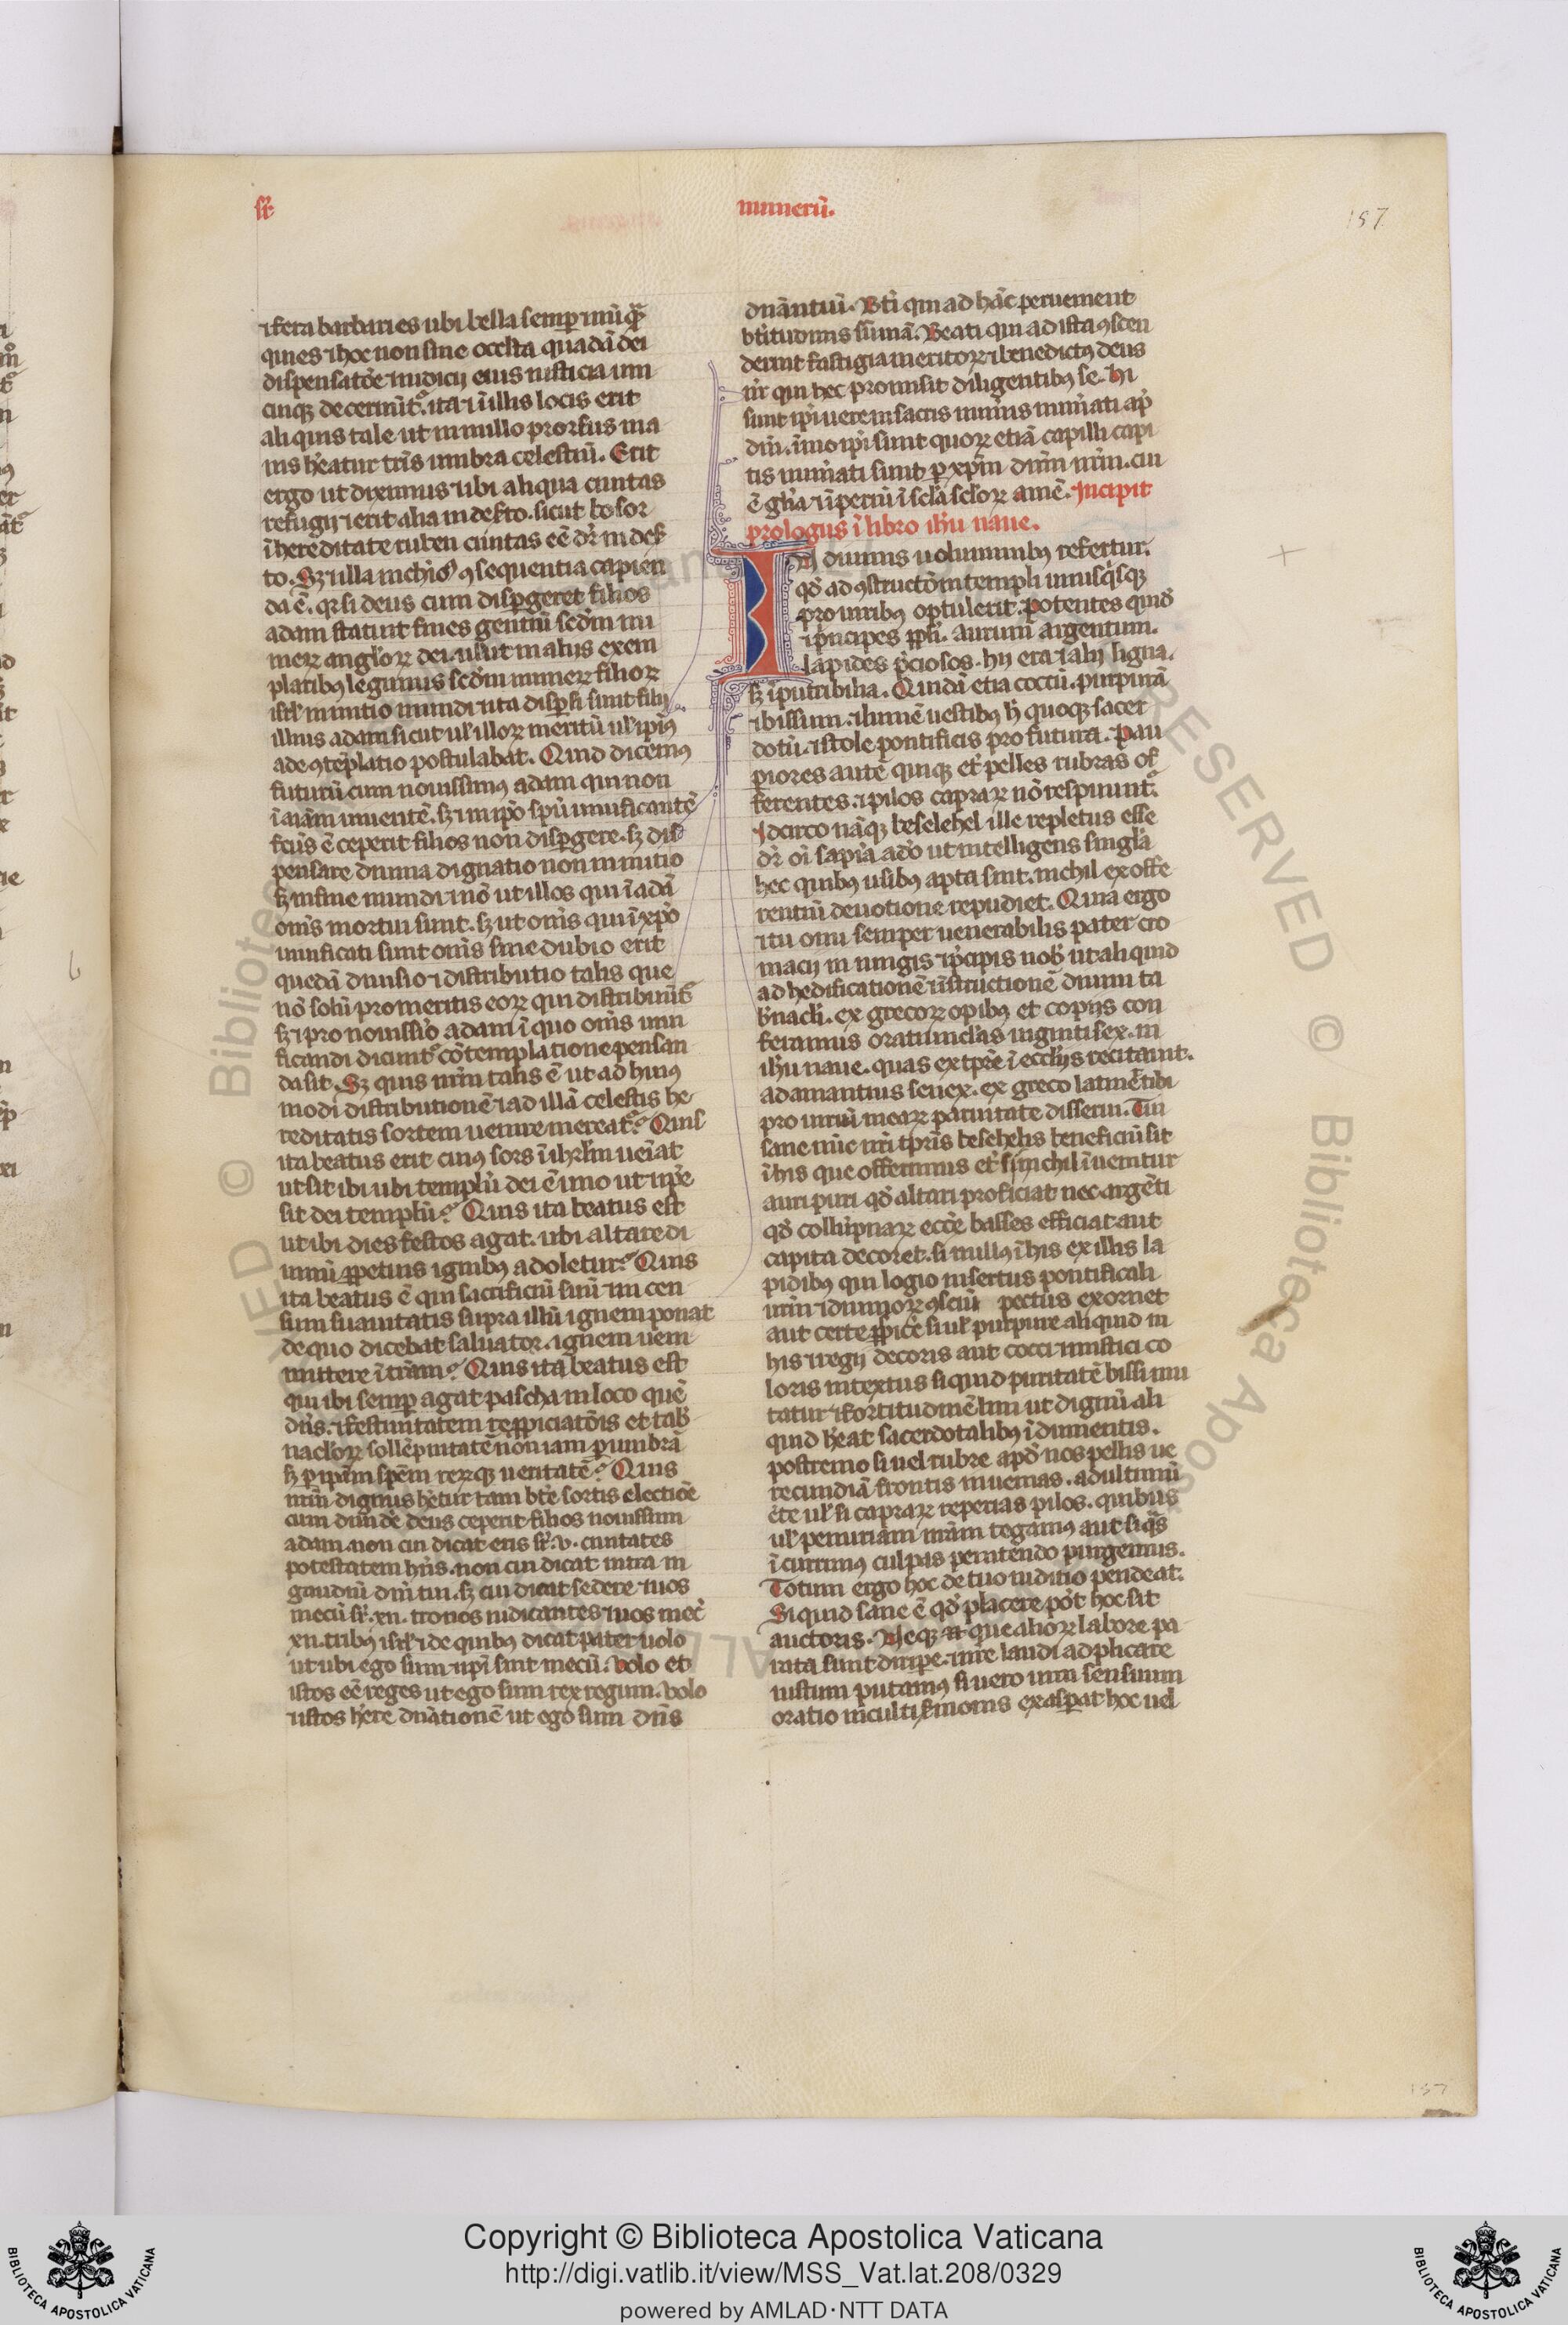 sr̃
numerũ.
157
⁊ fera barbaries ubi bella semꝑ nũq̃ꝫ
quies ⁊ hoc non sine occulta quadã dei
dispensatõe iudicii eius iusticia uni
cuiqꝫ decernit᷑. ita ⁊ ĩ illis locis erit
aliquis tale ut in nullo prorsus ma
gis heatur tr̃is umbra celestiũ. Erit
ergo ut diximus ⁊ ibi aliqua ciuitas
refugii ⁊ erit alia in deserto. sicut bosor
ĩ hereditate ruben ciuitas eẽ dr̃ in deser
to. Sꝫ ⁊ illa nichil9 ꝯsequentia capien
da ẽ. qr̃ si deus cum disꝑgeret filios
adam statuit fines gentiũ scd̃m nu
meꝝ angl̃oꝝ dei. ul̃ ut in aliis exem
plaribꝰ legimus scd̃m numeꝝ filioꝝ
isrl̃ in initio mundi ⁊ ita disꝑsi sunt filii
illius adam sicut ul̃ illoꝝ meritũ ul̃ ipiꝰ
ade ꝯtẽplatio postulabat. Quid dicemꝰ
futurũ cum nouissimꝰ adam qui non
ĩ aĩam uiuentẽ. sꝫ ⁊ in ip̃o sp̃u uiuificantẽ
fc̃us ẽ ceperit filios non disꝑgere. sꝫ dis
pensare diuina dignatio non in initio
sꝫ in fine mundi. nõ ut illos qui ĩ adã
om̃s mortui sunt. sꝫ ut om̃s qui ĩ xp̃o
uiuificati sunt om̃s sine dubio erit
quedã diuisio ⁊ distributio talis que
nõ solũ pro meritis eoꝝ qui distribuũt᷑
sꝫ ⁊ pro nouissĩo adam ĩ quo om̃s uiui
ficandi dicunt᷑ cõtemplatione pensan
da sit. Sꝫ quis nr̃m talis ẽ ut ad huiꝰ
modi distributionẽ ⁊ ad illã celestis he
reditatis sortem uenire mereat᷑? Quis
ita beatus erit cuiꝰ sors ĩ ihrl̃m ueniat
ut sit ibi ubi templũ dei ẽ imo ut ip̃e
sit dei templũ? Quis ita beatus est
ut ibi dies festos agat. ubi altare di
uinũ ꝑpetuis ignibꝰ adoletur? Quis
ita beatus ẽ qui sacrificiũ suũ ⁊ in cen
sum suauitatis supra illũ ignem ponat
de quo dicebat saluator. ignem ueni
mittere ĩ tr̃am? Quis ita beatus est
qui ibi semꝑ agat pascha in loco quẽ
dñs. ⁊ festiuitatem respiciatõis et tab̃
nacl̃oꝝ sollẽpnitatẽ non iam ꝑ umbrã
sꝫ ꝑ ip̃am spẽm reꝝqꝫ ueritatẽ? Quis
nr̃m dignus hẽtur tam btẽ sortis electiõe
cum diuidẽ deus ceperit filios nouissimi
adam. non cui dicat eris sr̃ .v. ciuitates
potestatem hñs. non cui dicat intra in
gaudiũ dñi tui. sꝫ cui dicat sedere ⁊ uos
mecũ sr̃ .xii. tronos iudicantes ⁊ uos mec̃
xii. tribꝰ isrl̃ ⁊ de quibꝰ dicat pater uolo
ut ubi ego sum ⁊ ip̃i sint mecũ. Volo et
istos eẽ reges ut ego sum rex regum. Volo
⁊ istos hẽre dñationẽ ut ego sum dñs
dñantiũ. Bti qui ad hãc peruenient
btitudinis sũmã. Beati qui ad ista ꝯscen
derint fastigia meritoꝝ ⁊ benedictꝰ deus
nr̃ qui hec promisit diligentibꝰ se. Hi
sunt ip̃i uere in sacris nũeris nũerati ap̃
dñi. imo ip̃i sunt quoꝝ etiã capilli capi
tis nũerati sunt ꝑ xp̃m dñm nr̃m. cui
ẽ gl̃ia ⁊ iperiũ ĩ scl̃a scl̃oꝝ amẽ. Incipit
prologus ĩ libro ihũ naue.
In diuinis uoluminibꝰ refertur.
qd̃ ad ꝯstructõm templi unusq̃sqꝫ
pro uiribꝰ optulerit. Potentes quid̃
⁊ p̃ncipes pp̃li. aurum argentum.
lapides p̃ciosos. hii era ⁊ alii ligna.
sꝫ iputribilia. Quidã etia coccũ. purpurã
⁊ bissum. ⁊ lumẽ uestibꝰ hꝫ quoqꝫ sacer
dotũ. ⁊ stole pontificis profutura. Pau
periores autẽ quiqꝫ et̃ pelles rubras of
ferentes. ⁊ pilos capraꝝ nõ respuunt᷑.
Idcirco nãqꝫ beselehel ille repletus esse
dr̃ oĩ sapĩa adõ ut intelligens singl̃a
hec quibꝰ usibꝰ apta sint. nichil ex offe
rentiũ deuotione repudiet. Quia ergo
⁊ tu omi semper uenerabilis pater cro
macii in iungis ⁊ p̃cipis nob̃ ut aliquid
ad hedificationẽ ⁊ ĩstructionẽ diuini ta
b̃nacl̃i. ex grecoꝝ opibꝰ et copiis con
feramus oratiunclas uiginti sex. in
ihũ naue. quas ex tpr̃e ĩ eccl̃iis recitauit.
adamantius senex. ex greco latinẽ tibi
pro uiriũ meaꝝ paruitate disserui. Tui
sane nũc mi tpr̃is beselehelis beneficiũ sit
ĩ his que offerimus et̃ si nichil ĩuenitur
auri puri qd̃ altari proficiat nec argẽti
qd̃ collũpnaꝝ ecc̃e basses efficiat aut
capita decoret. si nullꝰ ĩ his ex illis la
pidibꝰ qui logio insertus pontificali
urim ⁊ dumioꝝ ꝯsciũ pectus exornet
aut certe ꝑspice si ul̃ purpure aliquid in
his ⁊ regii decoris aut cocci mistici co
loris intextus si quid puritatẽ bissi mu
tatur ⁊ fortitudinẽ lini ut dignũ ali
quid heat sacerdotalibꝰ ĩdumentis.
postremo si uel rubre apd̃ nos pellis ue
recundiã frontis inuenias. ad ultimũ
c̃te ul̃ si capraꝝ reperias pilos. quibus
ul̃ penuriam nr̃am tegamꝰ aut siq̃s
ĩcurrimꝰ culpas penitendo purgemus.
Totum ergo hoc de tuo iudicio pendeat.
Si quid sane ẽ qd̃ placere põt hoc sit
auctoris. Neqꝫ que alioꝝ labore pa
rata sunt diripe. nr̃e laudi adplicare
iustum putamꝰ si uero inter sensuum
oratio inculti sermonis exasꝑat hoc uel
157
Copyright © Biblioteca Apostolica Vaticana
http://digi.vatlib.it/view/MSS_Vat.lat.208/0329
powered by AMLAD·NTT DATA
BIBLIOTECA APOSTOLICA VATICANA
BIBLIOTECA APOSTOLICA VATICANA